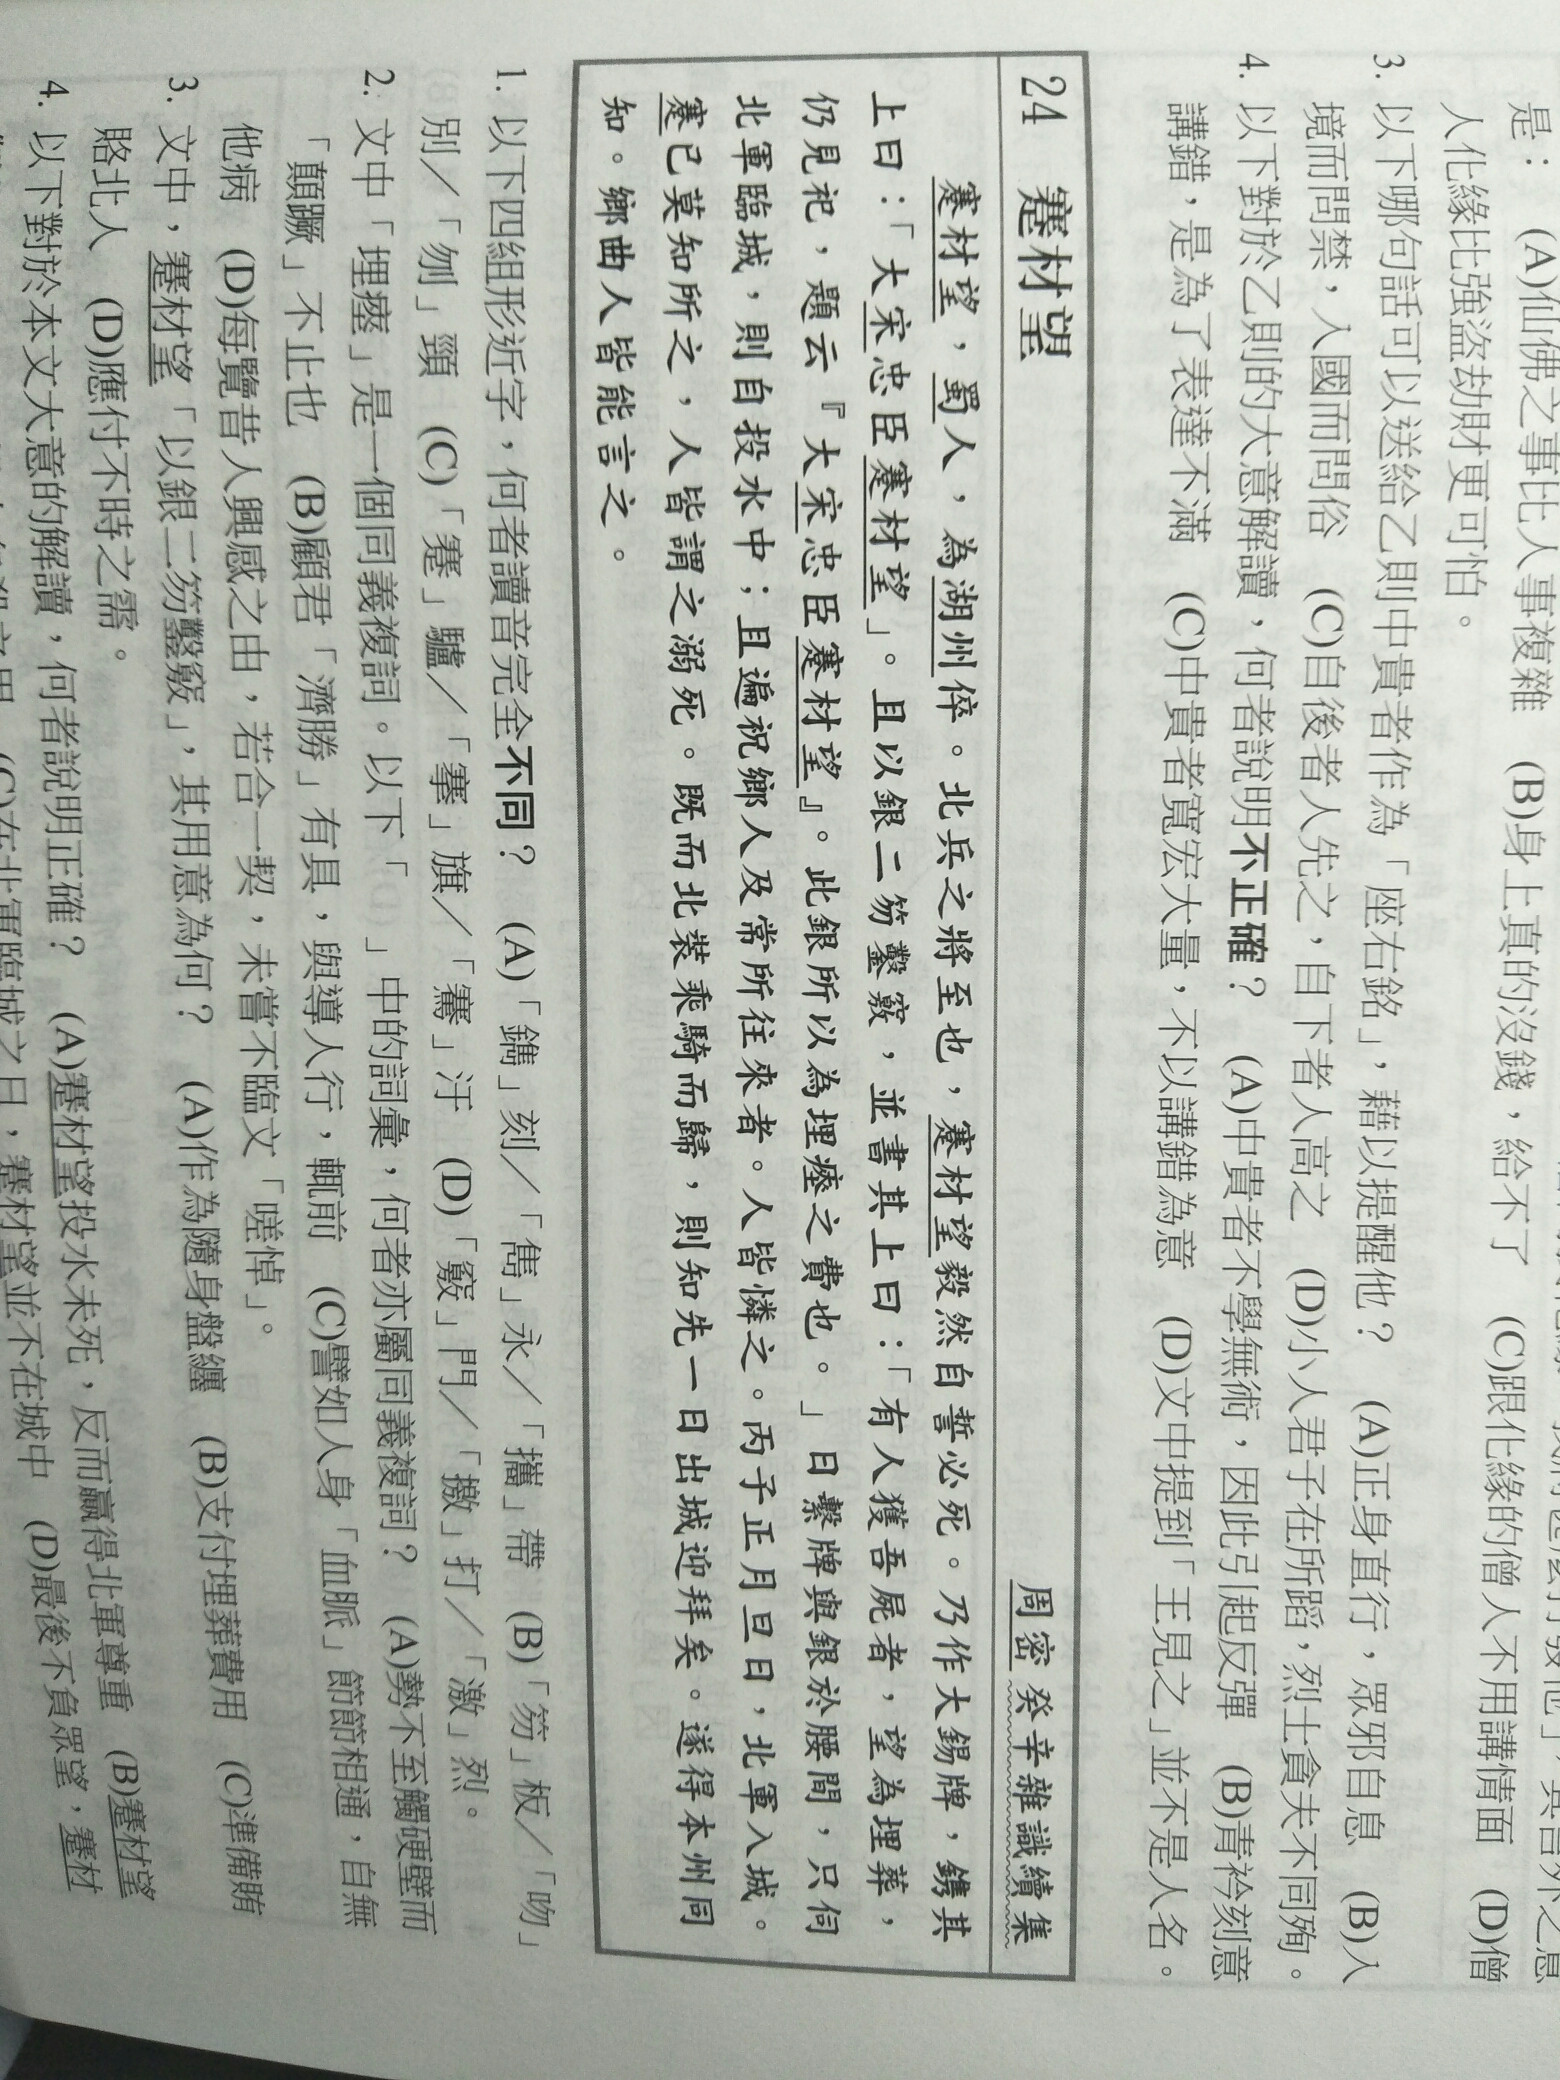 是： (A)仙佛之事比人事複雜 (B)身上真的沒錢，給不了 (C)跟化緣的僧人不用講情面 (D)僧
人化緣比強盜劫財更可怕。
3. 以下哪句話可以送給乙則中貴者作為「座右銘」，藉以提醒他？ (A)正身直行，眾邪自息 (B)入
境而問禁，入國而問俗 (C)自後者人先之，自下者人高之 (D)小人君子在所蹈，烈士貪夫不同殉。
4. 以下對於乙則的大意解讀，何者說明不正確？ (A)中貴者不學無術，因此引起反彈 (B)青衿刻意
講錯，是為了表達不滿 (C)中貴者寬宏大量，不以講錯為意 (D)文中提到「王見之」並不是人名。
24 蹇材望 周密 癸辛雜識續集
蹇材望，蜀人，為湖州倅。北兵之將至也，蹇材望毅然自誓必死。乃作大錫牌，鐫其
上曰：「大宋忠臣蹇材望」。且以銀二笏鑿竅，並書其上曰：「有人獲吾屍者，望為埋葬，
仍見祀，題云『大宋忠臣蹇材望』。此銀所以為埋瘞之費也。」日繫牌與銀於腰間，只伺
北軍臨城，則自投水中；且遍祝鄉人及常所往來者。人皆憐之。丙子正月旦日，北軍入城。
蹇已莫知所之，人皆謂之溺死。既而北裝乘騎而歸，則知先一日出城迎拜矣。遂得本州同
知。鄉曲人皆能言之。
1. 以下四組形近字，何者讀音完全不同？ (A)「鐫」刻／「雋」永／「攜」帶 (B)「笏」板／「吻」
別／「刎」頸 (C)「蹇」驢／「搴」旗／「騫」汙 (D)「竅」門／「撽」打／「激」烈。
2. 文中「埋瘞」是一個同義複詞。以下「 」中的詞彙，何者亦屬同義複詞？ (A)勢不至觸硬壁而
「顛蹶」不止也 (B)顧君「濟勝」有具，與導人行，輒前 (C)譬如人身「血脈」節節相通，自無
他病 (D)每覽昔人興感之由，若合一契，未嘗不臨文「嗟悼」。
3. 文中，蹇材望「以銀二笏鑿竅」，其用意為何？ (A)作為隨身盤纏 (B)支付埋葬費用 (C)準備賄
賂北人 (D)應付不時之需。
4. 以下對於本文大意的解讀，何者說明正確？ (A)蹇材望投水未死，反而贏得北軍尊重 (B)蹇材望
(C)在北軍臨城之日，蹇材望並不在城中 (D)最後不負眾望，蹇材